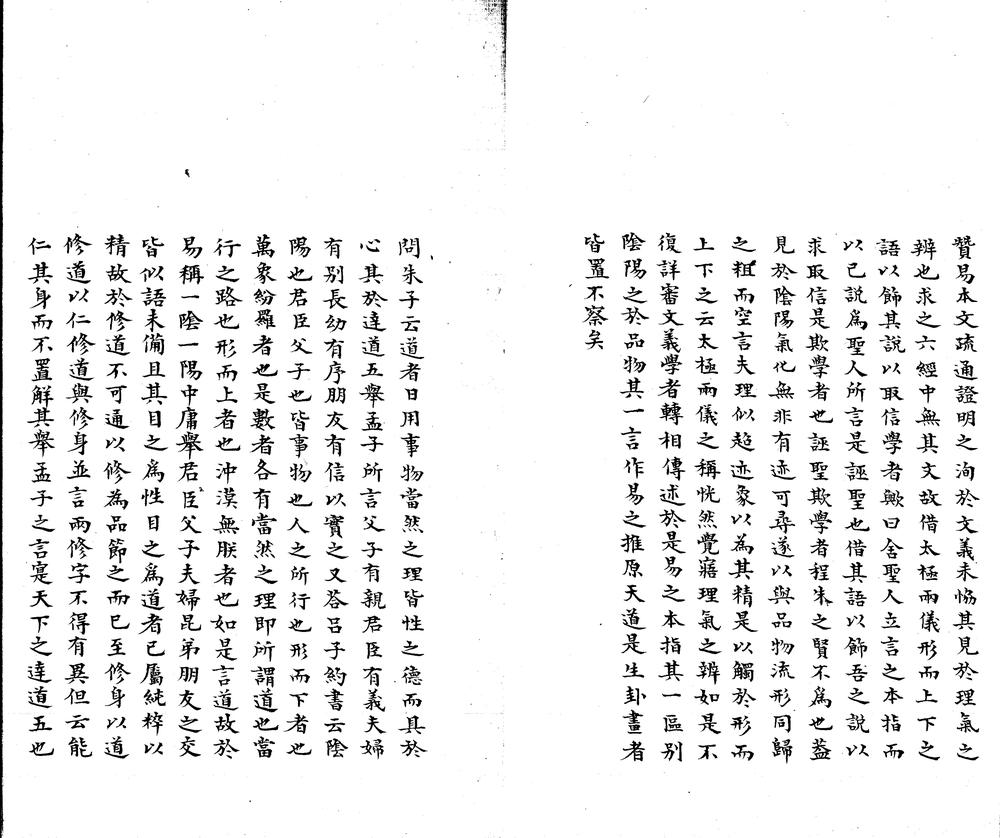 贊易本文疏通證明之洵於文義未恊其見於理氣之
辨也求之六經中無其文故借太極兩儀形而上下之
語以飾其說以取信學者歟曰舍聖人立言之本指而
以已說爲聖人所言是誣聖也借其語以飾吾之說以
求取信是欺學者也誣聖欺學者程朱之賢不爲也葢
見於陰陽氣化無非有迹可尋遂以與品物流形同歸
之粗而空言夫理似超迹象以為其精是以觸於形而
上下之云太極兩儀之稱恍然覺寤理氣之辨如是不
復詳審文義學者轉相傳述於是易之本指其一區别
陰陽之於品物其一言作易之推原天道是生卦畫者
皆置不察矣
問朱子云道者日用事物當然之理皆性之德而具於
心其於達道五舉孟子所言父子有親君臣有義夫婦
有别長幼有序朋友有信以實之又荅吕子約書云陰
陽也君臣父子也皆事物也人之所行也形而下者也
萬象紛羅者也是數者各有當然之理即所謂道也當
行之路也形而上者也沖漠無朕者也如是言道故於
易稱一陰一陽中庸舉君臣父子夫婦昆弟朋友之交
皆似語未備且其目之爲性目之爲道者已屬純粹以
精故於修道不可通以修為品節之而已至修身以道
修道以仁修道與修身並言兩修字不得有異但云能
仁其身而不置解其舉孟子之言寔天下之達道五也